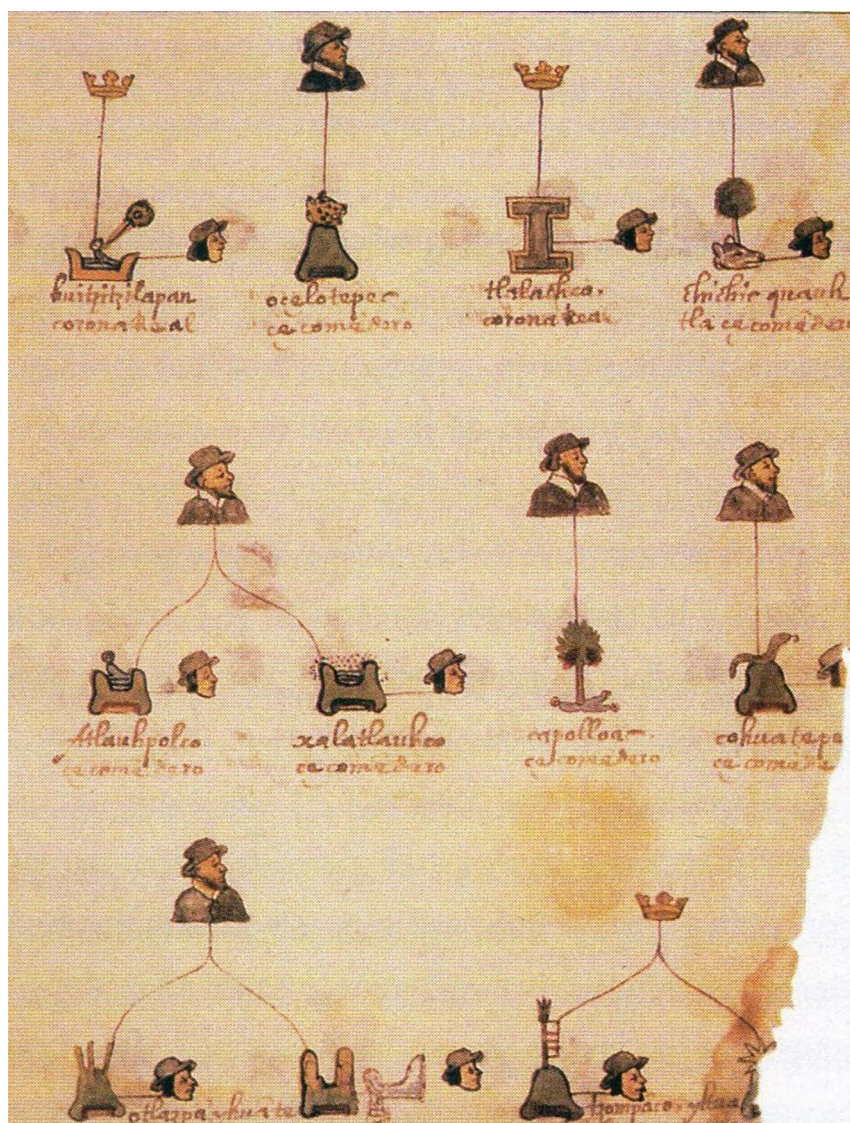 huitzitzilapan
corona Real
ocelotepec
ce comēdero
tlalachco.
corona Rea
chichic quauh
tla ce comēdero
Atlauhpolco
ce comēdero
xalatlauhco
ce comēdero
capolloac
ce comēdero
cohuatepe
ce comēde
otlazpa yhuā te
tzompāco